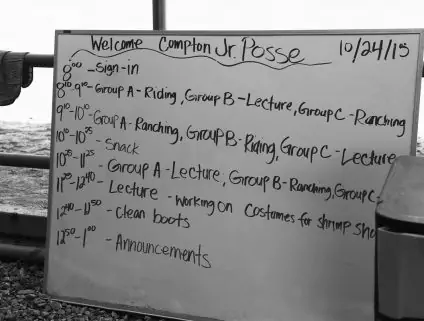 Welcome Compton Jr. Posse 10/24/15
8:00 - Sign-in
8:10-9:10 - Group A - Riding, Group B - Lecture, Group C - Ranching
9:10-10:10 - Group A - Ranching, Group B - Riding, Group C - Lecture
10:10-10:25 - Snack
10:25-11:25 - Group A - Lecture, Group B - Ranching, Group C -
11:25-12:40 - Lecture - Working on costumes for shrimp sho
12:40-12:50 - Clean boots
12:50-1:00 - Announcements